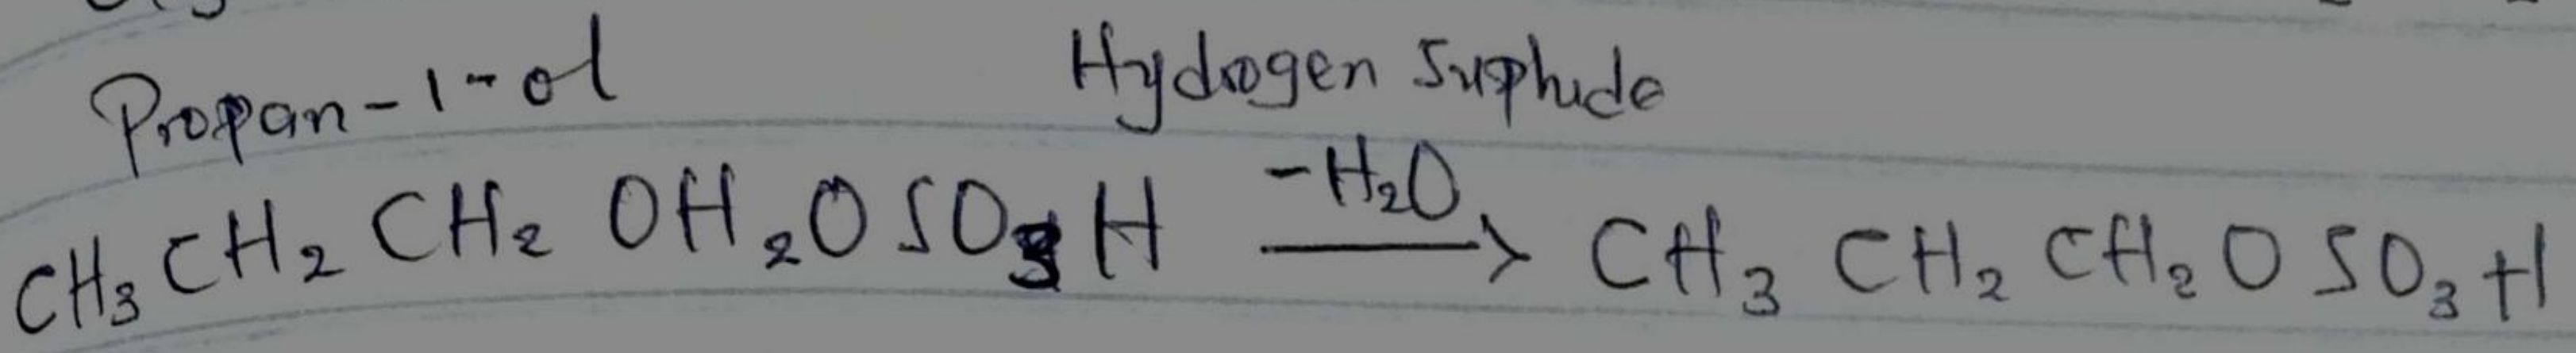 Propan-1-ol Hydrogen Suphide
CH₃CH₂CH₂OH₂OSO₃H -H₂O → CH₃CH₂CH₂OSO₃H